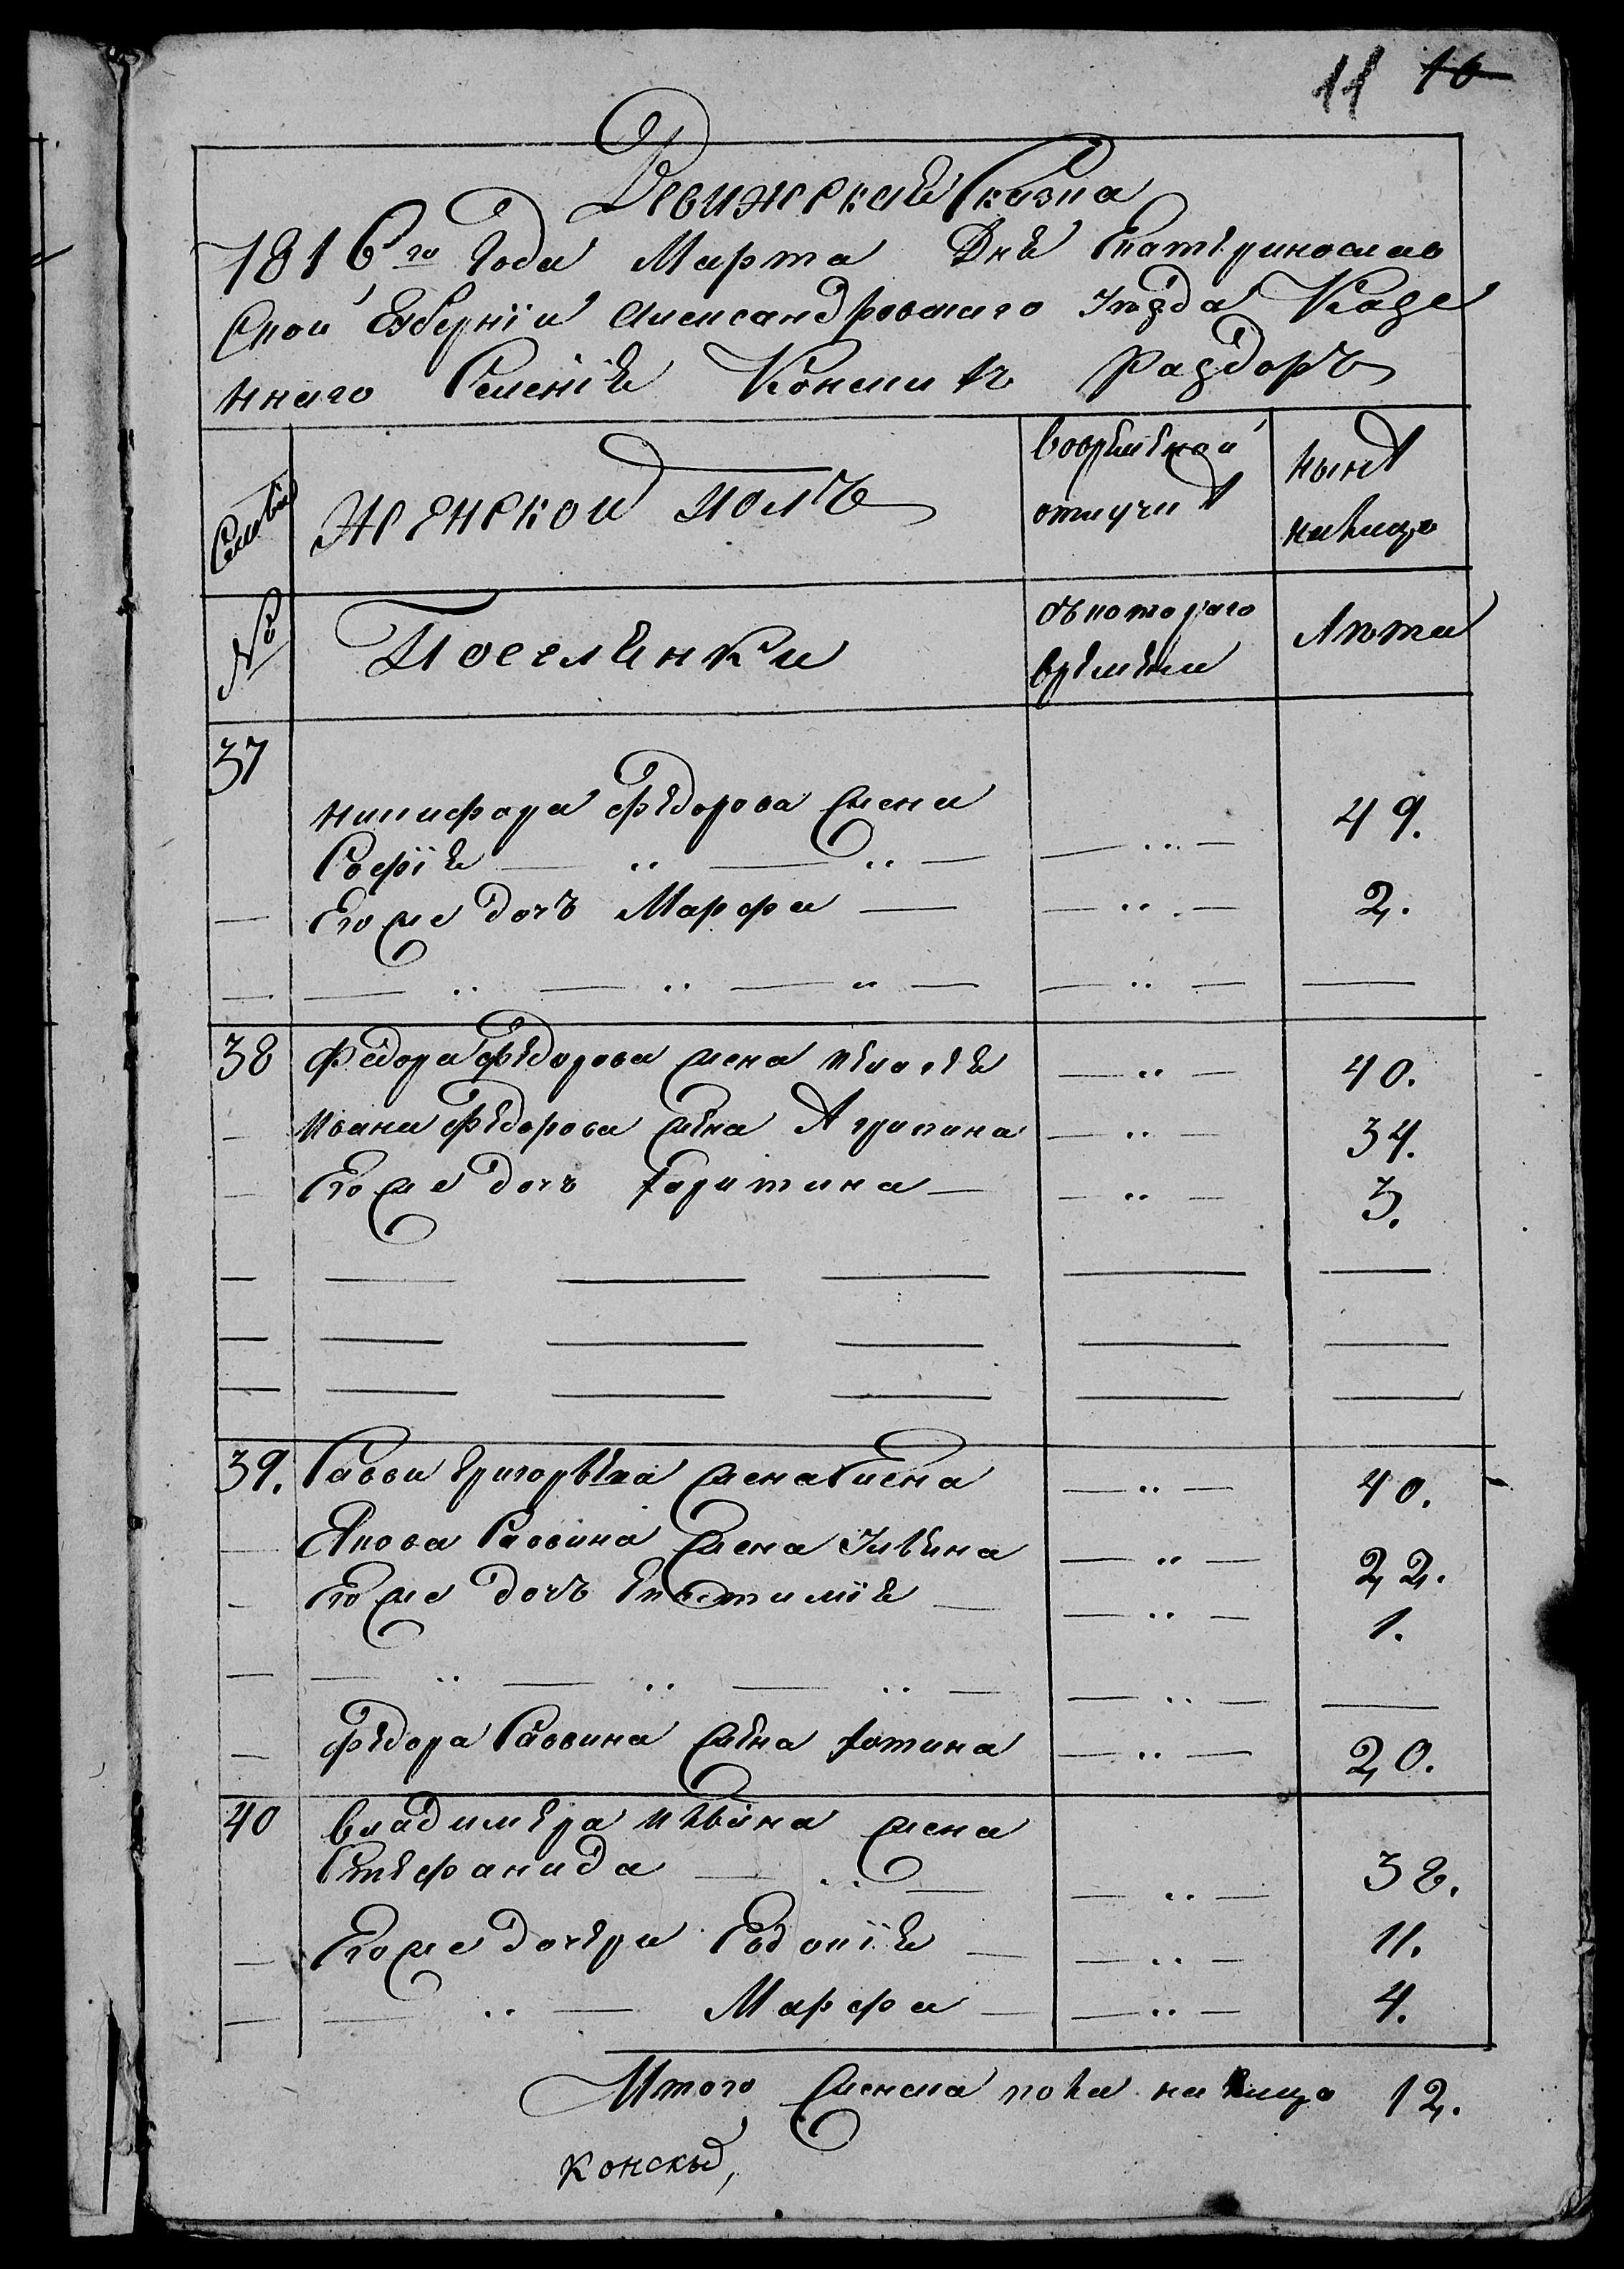 11 10
Ревижская Сказка
1816го Года Марта Дня Екатеринослав
ской Губернiи Александровскаго Уѣзда Казе
ннаго Селенiя Конскихъ Раздоръ
Семьи
женской полъ
вовремѣнной
отлучкѣ
нынѣ
налицо
№
Поселянки
съкотораго
времѣни
Лѣта
37
никифора федорова жена
Софiя — .. — .. — — .. — 49.
— Его же дочь Марфа — — .. — 2.
— — .. — .. — .. — — .. — —
38 Федора федорова жена пелагея — .. — 40.
— Ивана федорова жена Агрипина — .. — 34.
— Его же дочь Харитина — — .. — 3.
— — — — — —
— — — — — —
— — — — — —
39. Саввы григорьева жена Елена — .. — 40.
— Якова Саввина жена Ульяна — .. — 22.
— Его же дочь Евстимiя — — .. — 1.
— — .. — .. — .. — — .. — —
— федора Саввина жена фотина — .. — 20.
40 владимера ильина жена
Стефанида — .. — — .. — 38.
— Его же дочери Евдокiя — — .. — 11.
— — .. — Марфа — — .. — 4.
Итого женска пола на лицо 12.
Конскы,